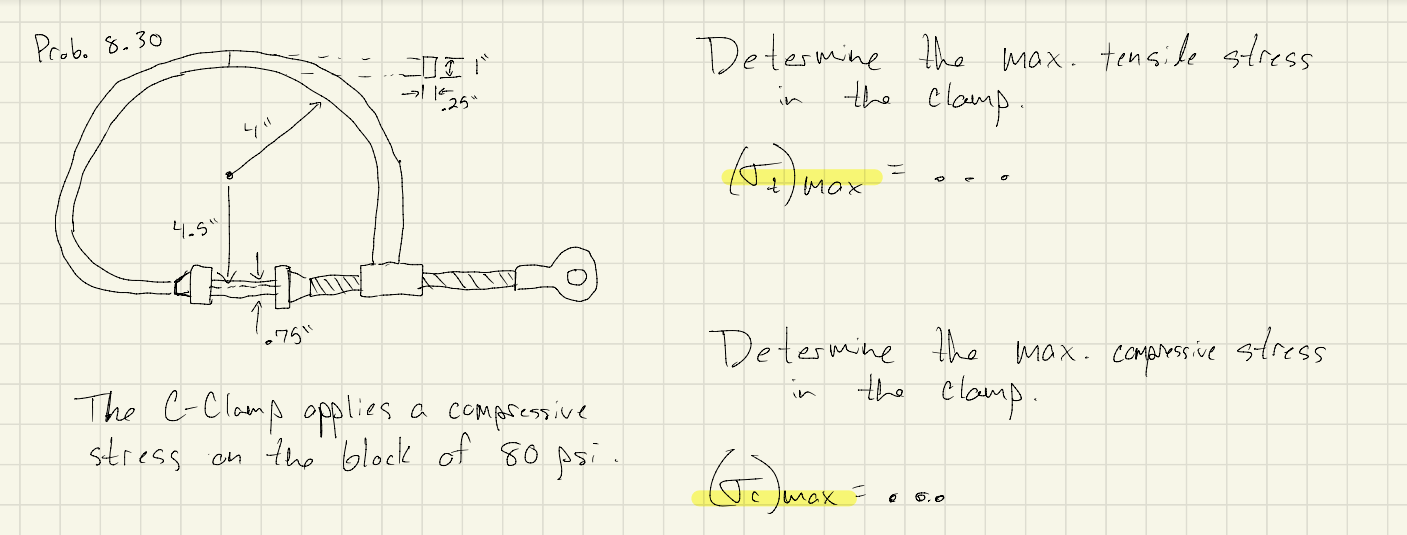 Prob. 8.30
1"
.25"
4"
4.5"
.75"
The C-Clamp applies a compressive
stress on the block of 80 psi.
Determine the max. tensile stress
in the clamp.
(σt)max = . . .
Determine the max. compressive stress
in the clamp.
(σc)max = . . . .